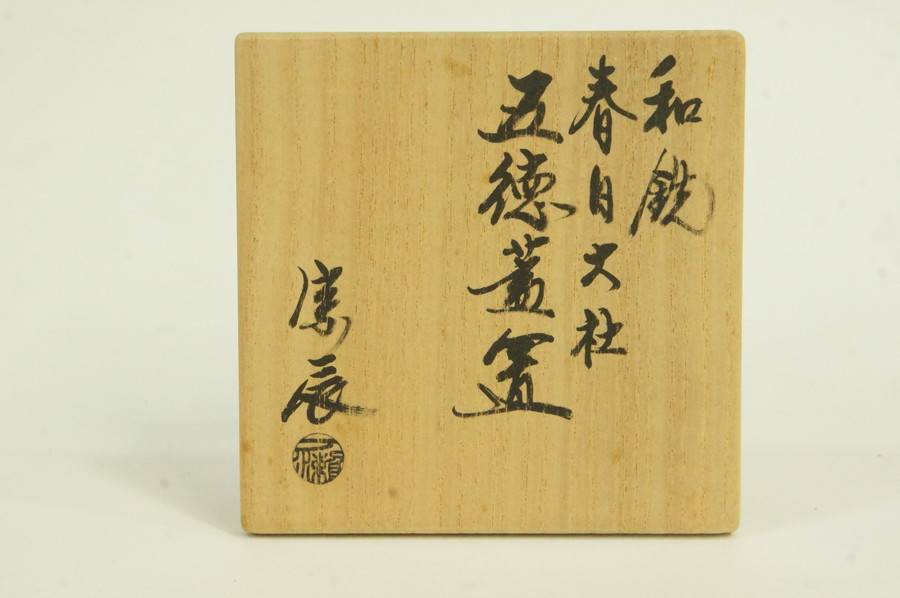 和銑
春日大社
五徳蓋置
辰